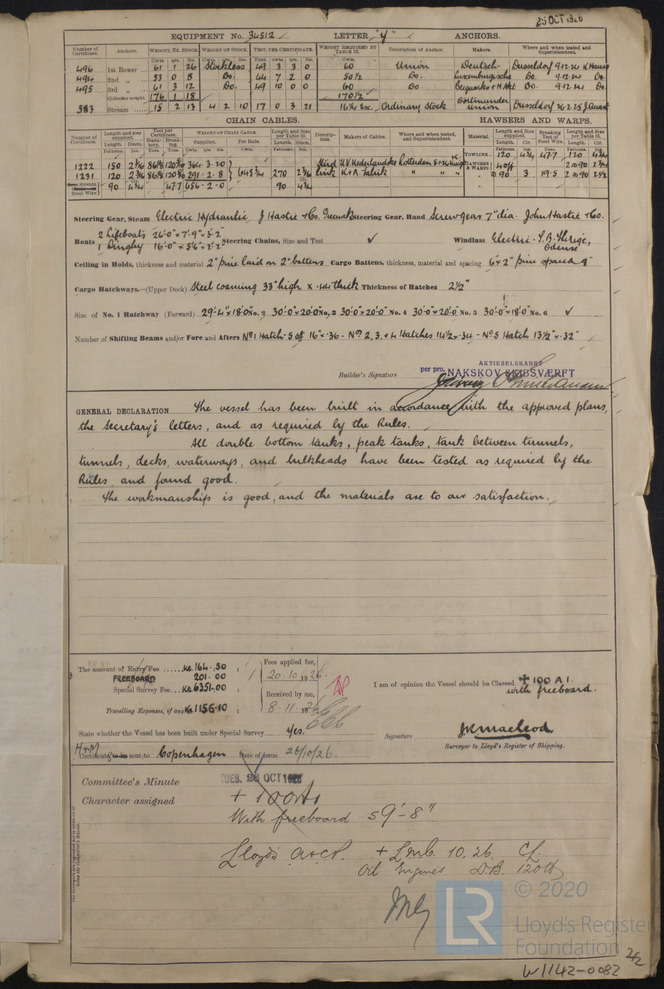 25 OCT 1926
EQUIPMENT No. 34512 LETTER "y" ANCHORS.
Number of Certificate. Anchors. WEIGHT, EX. STOCK WEIGHT OF STOCK. TEST, PER CERTIFICATE. WEIGHT REQUIRED BY TABLE 31. Description of Anchor. Makers. Where and when tested and Superintendent.
496 1st Bower 61 1 26 Stockless 49 3 3 0 60 Union Deutsch- Dusseldorf 9.12.24
494 2nd " 53 0 8 Do. 44 7 2 0 50½ Do. Luxemburgische Do. 9.12.24 Do.
495 3rd " 61 3 12 Do. 49 10 0 0 60 Do. Do. 9.12.24 Do.
Collective weight. 176 1 18 170½
587 Stream 15 2 13 4 2 10 17 0 3 21 16¼ Exc. Ordinary Stock Dortmunder Union Dusseldorf 16.2.25
CHAIN CABLES. HAWSERS AND WARPS.
Number of Certificate. Length and size supplied. Test per Certificate. WEIGHT OF CHAIN CABLE. Length and Size per Table 31. Description. Makers of Cables. Where and when tested, and Superintendent. Material. Length and Size supplied. Breaking Test of Steel Wire. Length and Size per Table 31.
1222 150 2 3/16 86 1/8 120 364.3.20
1231 120 2 3/16 86 1/8 120 291.2.8 645 3/4 270 2 3/16 Stud link
Steel Wire 90 4¾ 47.7 656.2.0 90 4¾
TOWLINE 120 4¾ 47.7 120 4¾
HAWSERS & WARPS 4 off 2 @ 90 2¾
@ 90 3 19.5 2 @ 90 2½
Steering Gear, Steam Electric Hydraulic, J Hastie & Co. Greenock Steering Gear, Hand Screw gear 7" dia. John Hastie & Co.
Boats 2 Lifeboats 26'.0" x 7'.9" x 3'.2"
1 Dinghy 16'.0" x 5'.6" x 2'.2" Steering Chains, Size and Test ✓ Windlass Electric. T.B. Thrige, Odense
Ceiling in Holds, thickness and material 2" pine laid on 2" battens Cargo Battens, thickness, material and spacing 6 x 2" pine spaced 9"
Cargo Hatchways.—(Upper Deck) Steel coaming 33" high x .44 thick Thickness of Hatches 2½"
Size of No. 1 Hatchway (Forward) 29'.4" x 18'.0" No. 2 30'.0" x 20'.0" No. 3 30'.0" x 20'.0" No. 4 30'.0" x 20'.0" No. 5 30'.0" x 18'.0" No. 6 ✓
Number of Shifting Beams and/or Fore and Afters No 1 Hatch - 5 off 16" x .36 - Nos 2, 3, & 4 Hatches 14½ x .34 - No 5 Hatch 13½" x .32"
AKTIESELSKABET
Builder's Signature per pro. NAKSKOV SKIBSVÆRFT
GENERAL DECLARATION The vessel has been built in accordance with the approved plans,
the Secretary's letters, and as required by the Rules.
All double bottom tanks, peak tanks, tank between tunnels,
tunnels, decks, waterways, and bulkheads have been tested as required by the
Rules and found good.
The workmanship is good, and the materials are to our satisfaction.
The amount of Entry Fee Kr. 164.50 Fees applied for,
FREEBOARD 201.00 20.10.1926
Special Survey Fee Kr 6351.00 Received by me,
Travelling Expenses, if any Kr 1156.10 8.11.1926
I am of opinion the Vessel should be Classed + 100 A1.
with freeboard.
State whether the Vessel has been built under Special Survey Yes.
Signature JK Macleod
Surveyor to Lloyd's Register of Shipping.
H+M Certificate to be sent to Copenhagen Date of issue 26/10/26.
Committee's Minute TUES. 26 OCT 1926
Character assigned + 100A1
With freeboard 59'-8"
Lloyds A&CP. + LMC 10.26 CL.
Oil Engines D.B. 120 lb
LR
© 2020
Lloyd's Register
Foundation
2/2
W1142-0082